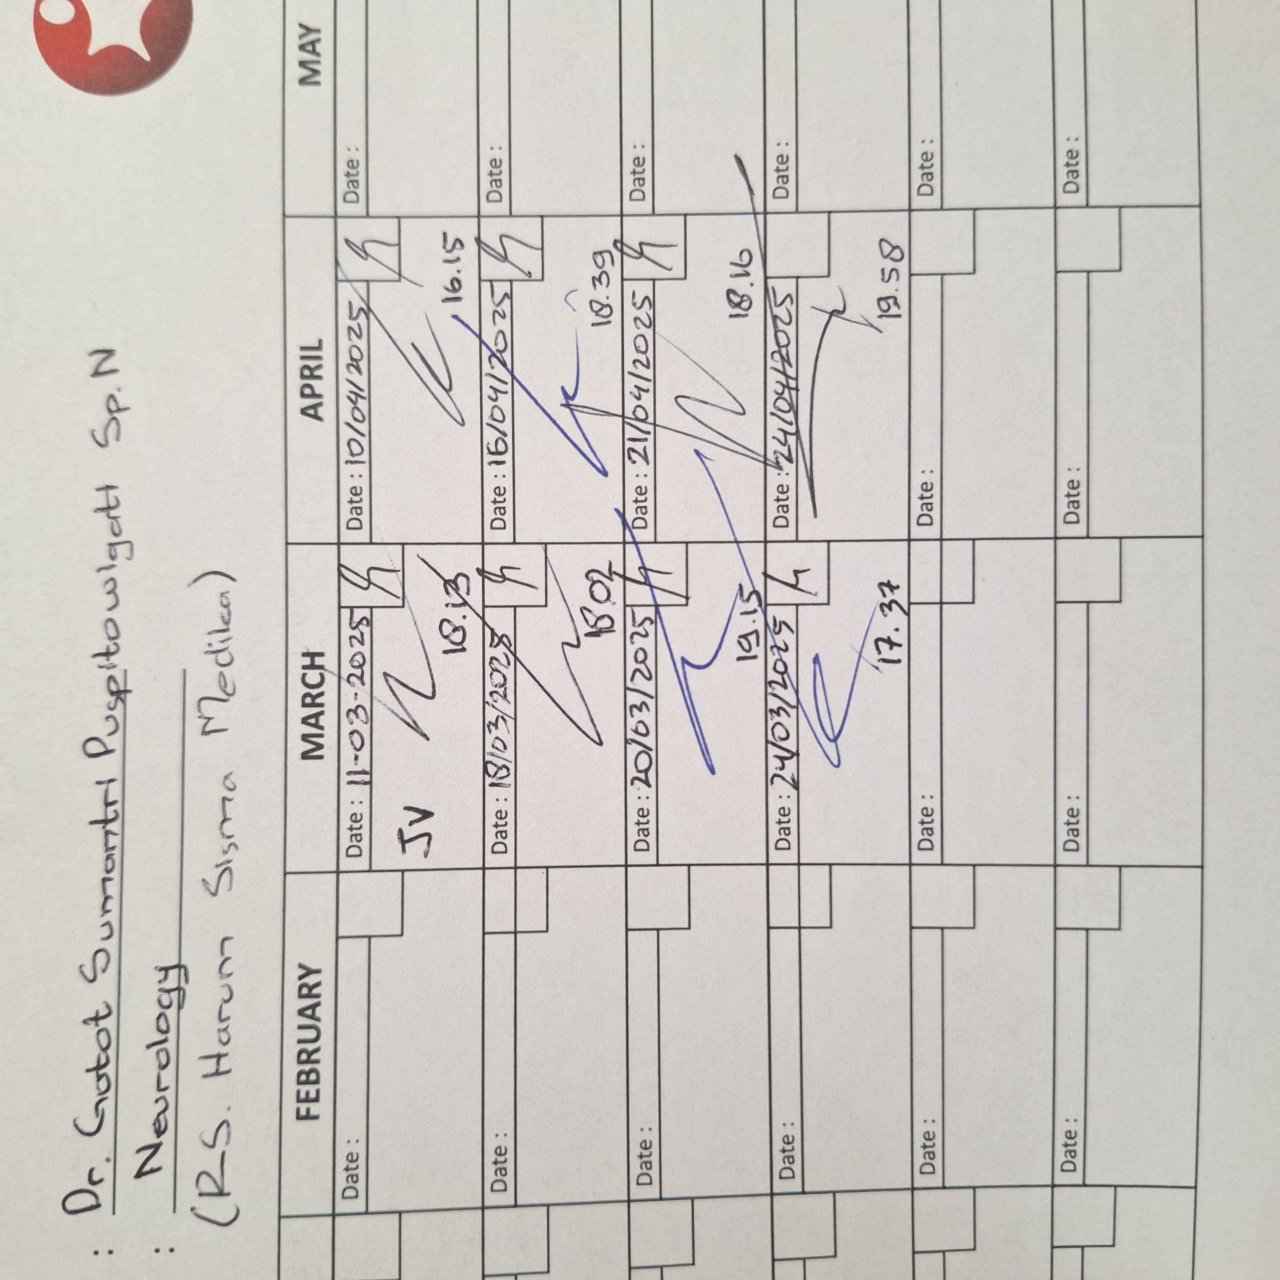 : Dr. Gatot Sumantri Puspitowlgati Sp.N
: Neurology
(RS. Harum Sisma Medika)
FEBRUARY MARCH APRIL MAY
Date : Date : 11-03-2025 Date : 10/04/2025 Date :
JV 18.13 16.15
Date : Date : 18/03/2025 Date : 16/04/2025 Date :
18.02 18.39
Date : Date : 20/03/2025 Date : 21/04/2025 Date :
19.15 18.16
Date : Date : 24/03/2025 Date : 24/04/2025 Date :
17.37 19.58
Date : Date : Date : Date :
Date : Date : Date : Date :